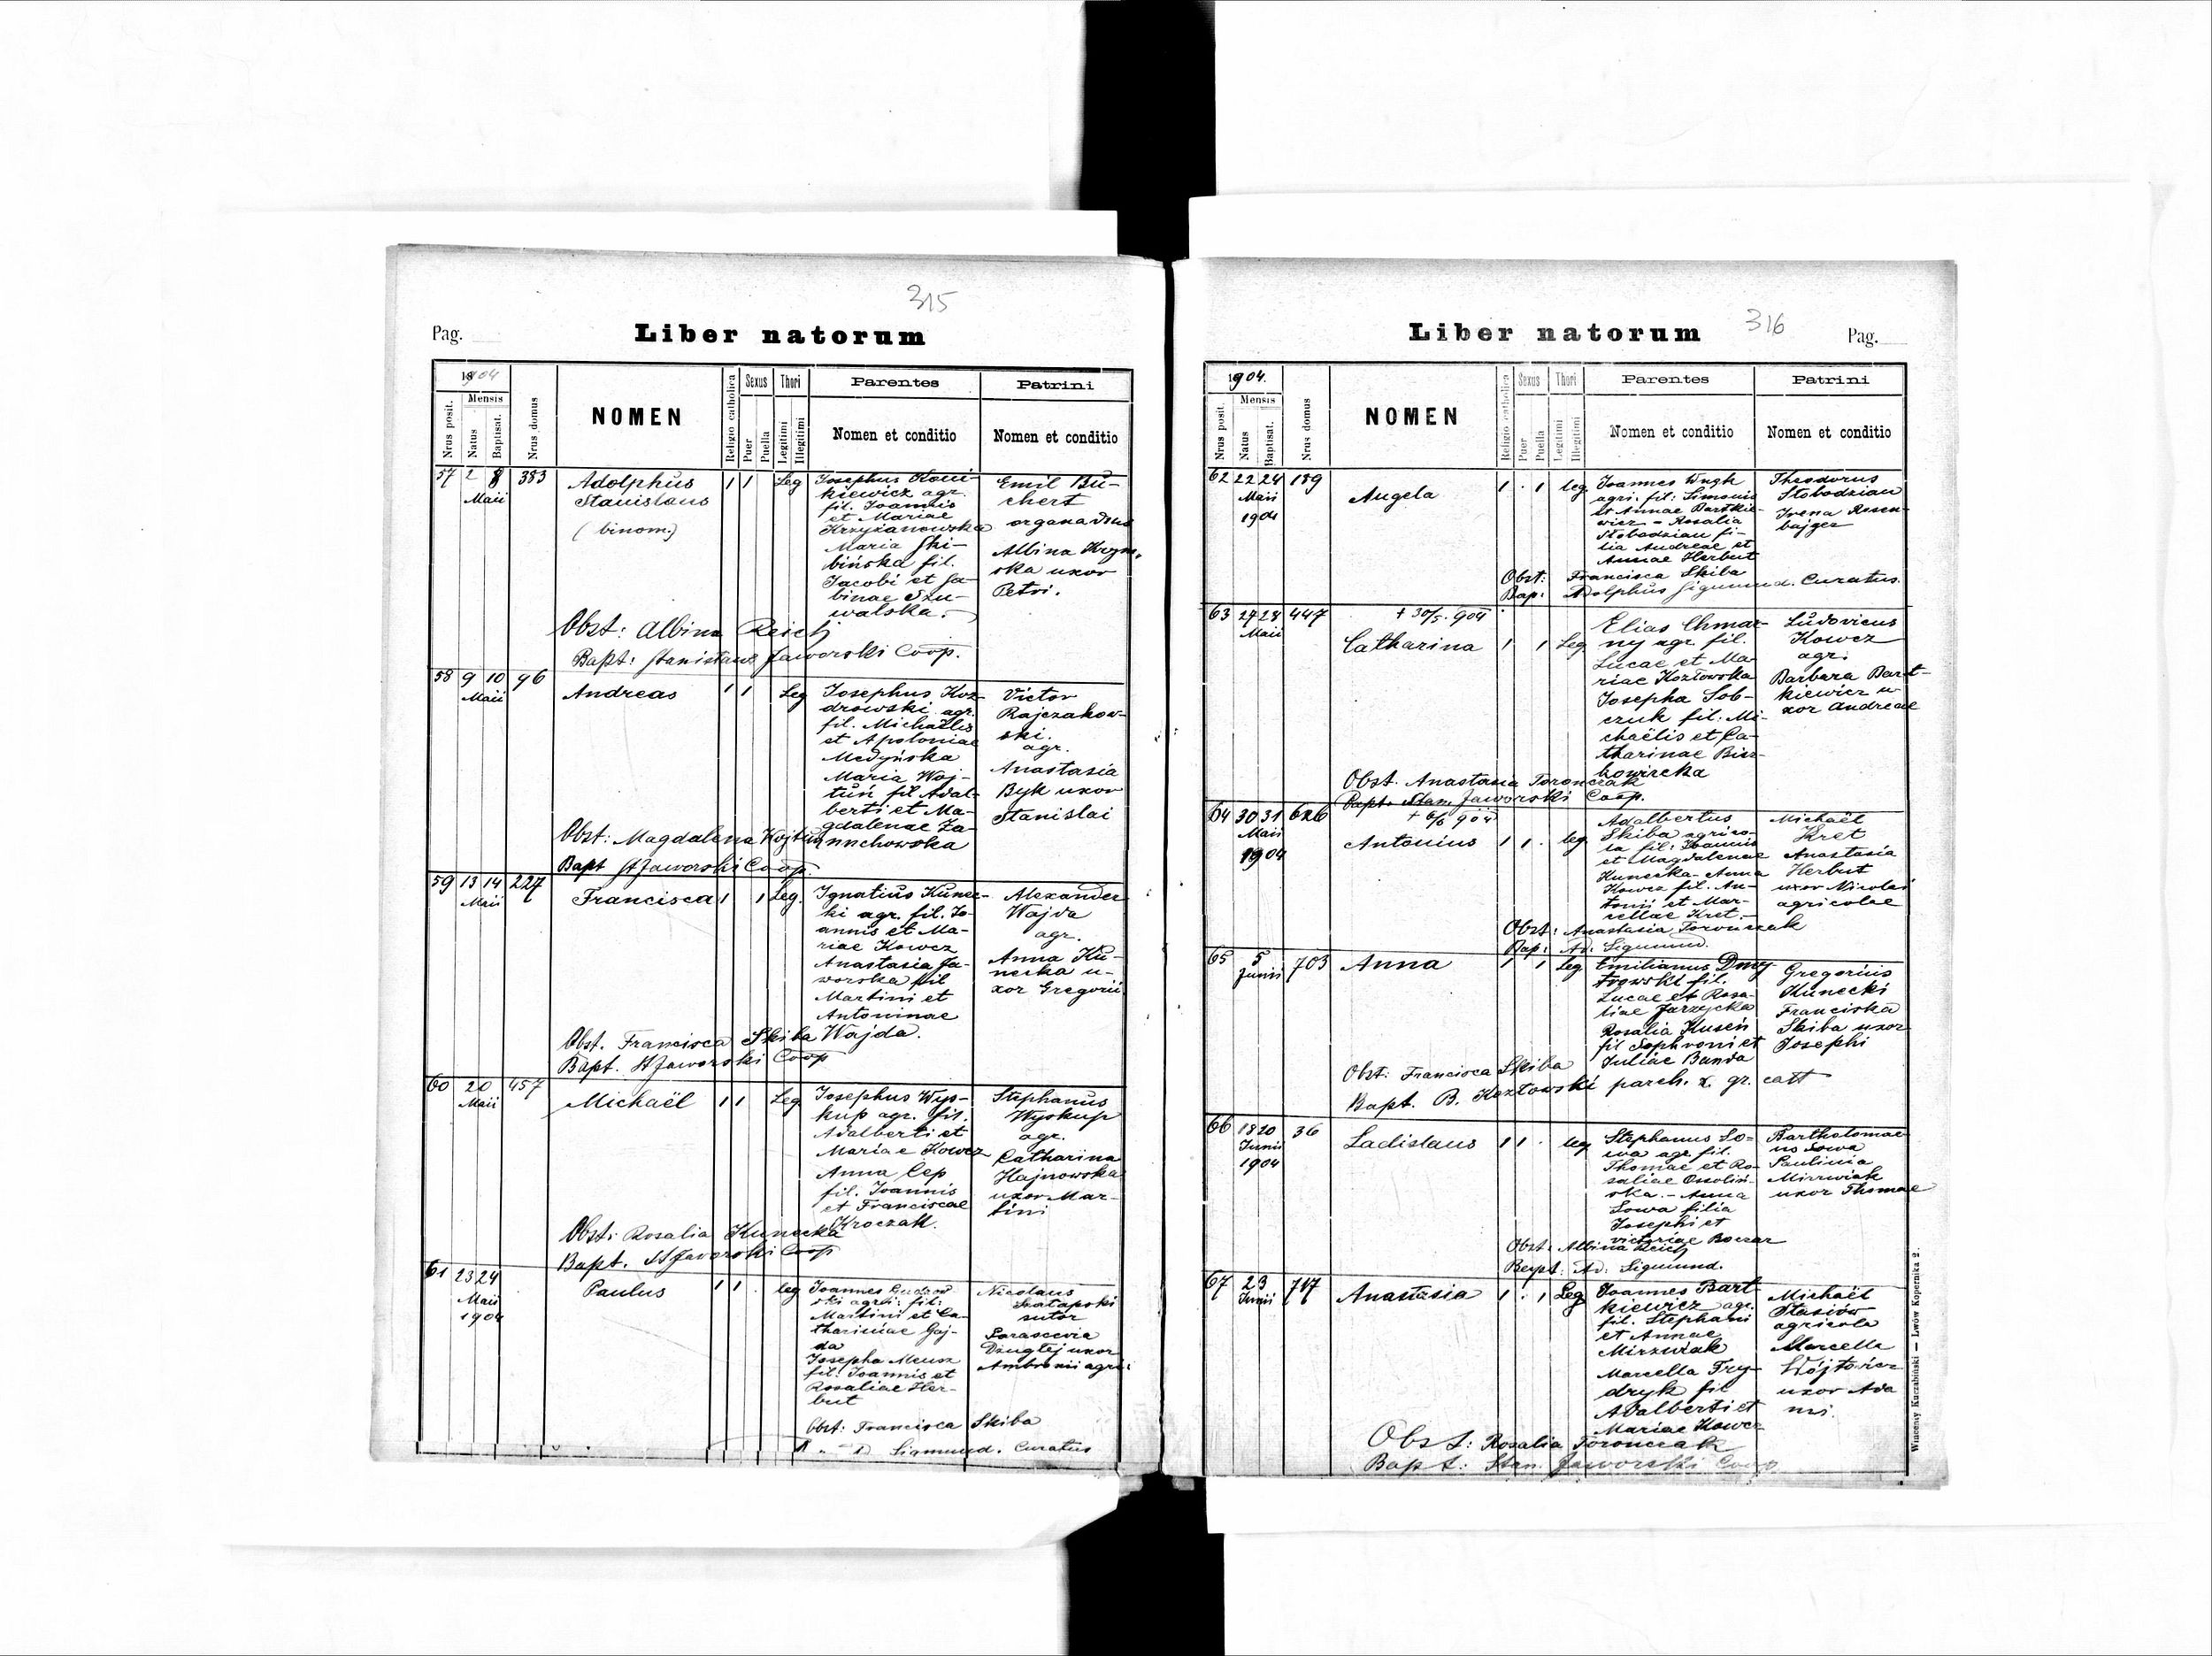 315
Pag.
Liber natorum
1904
Mensis
Nrus posit.
Natus
Baptisat.
Nrus domus
NOMEN
Religio catholica
Sexus
Puer
Puella
Thori
Legitimi
Illegitimi
Parentes
Nomen et conditio
Patrini
Nomen et conditio
57 2 8 383
Maii
Adolphus
Stanislaus
(binom.)
1 1 Leg
Josephus
kiewicz agr.
fil. Joannis
et Mariae
Krzyżanowska
Maria Ski-
bińska fil.
Jacobi et Sa-
binae Szu-
walska.
Emil Bu-
chert
Albina
ska uxor
Petri.
Obst: Albina Reich
Bapt: Stanislaus Jaworski Coop.
58 9 10 96
Maii
Andreas
1 1 Leg
Josephus Koz-
drowski agr.
fil. Michaëlis
et Apoloniae
Medyńska
Maria Woj-
tuń fil Adal-
berti et Ma-
gdalenae Za-
nnchowska
Victor
Rajczakow-
ski.
agr.
Anastasia
Byk uxor
Stanislai
Obst: Magdalena Wojtuń
Bapt St Jaworski Coop.
59 13 14 227
Maii
Francisca
1 1 Leg.
Ignatius Kunec-
ki agr. fil. Jo-
annis et Ma-
riae Kowcz
Anastasia Ja-
worska fil
Martini et
Antoninae
Wajda.
Alexander
Wajda
agr.
Anna Ku-
necka u-
xor Gregorii
Obst. Francisca Skiba
Bapt. St Jaworski Coop
60 20 457
Maii
Michaël
1 1 Leg
Josephus Wys-
kup agr. fil.
Adalberti et
Mariae Kowcz
Anna Cep
fil. Joannis
et Franciscae
Kroczak.
Stephanus
Wyskup
agr.
Catharina
Hajnowska
uxor Mar-
tini
Obst: Rosalia Kunecka
Bapt. St Jaworski Coop
61 23 24
Maii
1904
Paulus
1 1 . leg
Joannes
ski agri: fil:
Martini et Ca-
tharinae Gaj-
da
Josepha Meusz
fil: Joannis et
Rosaliae Her-
but
Nicolaus
Szałapski
sutor
Parascevia
uxor
Ambrosii agri:
Obst: Francisca Skiba
Sigmund. Curatus
316
Liber natorum
Pag.
1904.
Mensis
Nrus posit.
Natus
Baptisat.
Nrus domus
NOMEN
Religio catholica
Sexus
Puer
Puella
Thori
Legitimi
Illegitimi
Parentes
Nomen et conditio
Patrini
Nomen et conditio
62 22 24 189
Maii
1904
Angela
1 . 1 leg.
Joannes
agri. fil: Simonis
et Annae Bartkie-
wicz - Rosalia
Słobodzian fi-
lia Andreae et
Annae Herbut
Theodorus
Słobodzian
Irena Rosen-
bajger
Obst: Francisca Skiba
Bap: Adolphus Sigmund. Curatus.
63 27 28 447
Maii
+ 30/5. 904
Catharina
1 1 Leg
Elias Chmar-
ny agr. fil.
Lucae et Ma-
riae Kozłowska
Josepha Sob-
czuk fil. Mi-
chaëlis et Ca-
tharinae Bin-
kowiecka
Ludovicus
Kowcz
agr.
Barbara Bart-
kiewicz u-
xor Andreae
Obst. Anastasia Toronczak
Bapt. Stan. Jaworski Coop.
64 30 31 626
Maii
1904
+ 6/6 904
Antonius
1 1 . leg
Adalbertus
Skiba agrico-
la fil: Joannis
et Magdalenae
Kunecka - Anna
Kowcz fil. An-
tonii et Mar-
cellae Kret.-
Michaël
Kret
Anastasia
Herbut
uxor Nicolai
agricolae
Obst: Anastasia Toronczak
Bap: Ad. Sigmund.
65 5 703
Junii
Anna
1 1 Leg
Emilianus Dmy-
trowski fil.
Lucae et Rosa-
liae Jarzycka
Rosalia Kuseń
fil Sophroni et
Juliae Banda
Gregorius
Kunecki
Franciska
Skiba uxor
Josephi
Obst: Francisca Skiba
Bapt. B. Kozłowski parch. r. gr. catt
66 18 20 36
Junii
1904
Ladislaus
1 1 . leg
Stephanus So-
wa agr fil.
Thomae et Ro-
saliae Ossoliń-
ska. - Anna
Sowa filia
Josephi et
victoriae Boczar
Bartholomae-
us Sowa
Paulina
Mirzwiak
uxor Thomae
Obst: Albina Reich
Bapt: Ad: Sigmund.
67 23 717
Junii
Anastasia
1 . 1 Leg
Joannes Bart-
kiewicz agr.
fil. Stephani
et Annae
Mirzwiak
Marcella Fry-
dryk fil
Adalberti et
Mariae Kowcz
Michaël
Stasiów
agricola
Marcella
uxor Ada-
mi.
Obst: Rosalia Toronczak
Bapt: Stan. Jaworski Coop
Wincenty Kuczabiński — Lwów Kopernika 2.